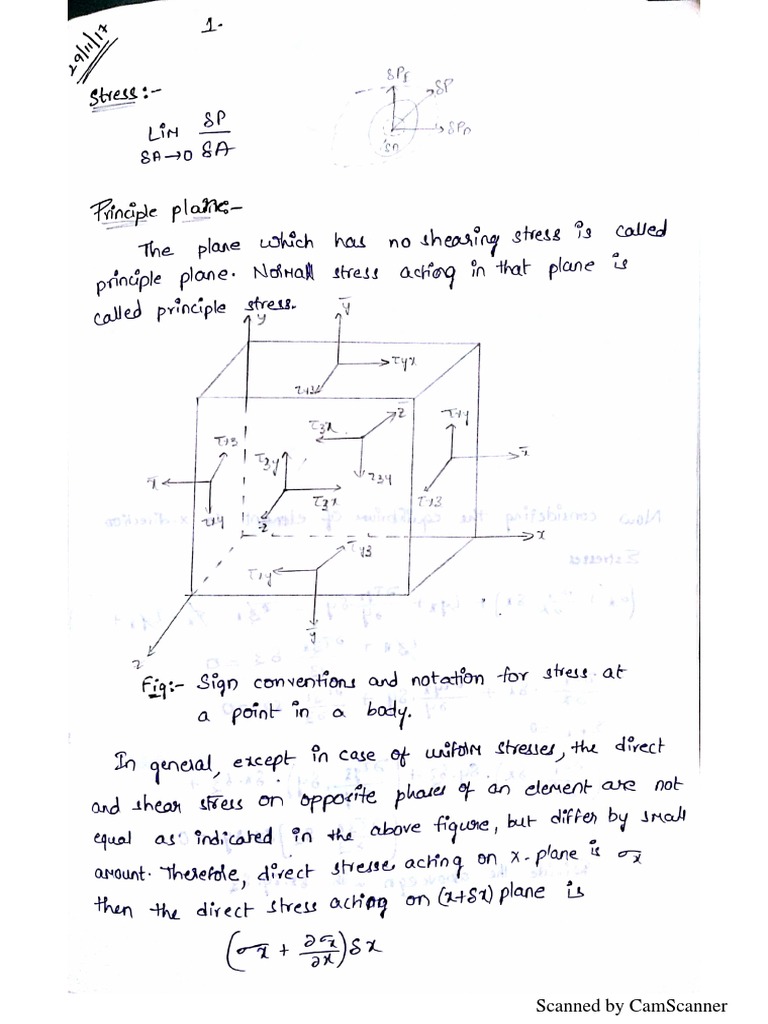 29/11/17
1.
Stress:-
δPf
δP
δPn
LiM δP
δA→0 δA
δA
Principle plane:-
The plane which has no shearing stress is called
principle plane. Normal stress acting in that plane is
called principle stress.
y
y̅
τyx
τyz
τzx
z̅
τxy
x̅
τxz
τzy
x̅
τzy
τzx
τxz
τxy
z̅
x
τxy
τyz
y̅
z
Fig:- Sign conventions and notation for stress at
a point in a body.
In general, except in case of uniform stresses, the direct
and shear stress on opposite phases of an element are not
equal as indicated in the above figure, but differ by small
amount. Therefore, direct stresse acting on x-plane is σx
then the direct stress acting on (x+δx) plane is
(σx + ∂σx/∂x) δx
Scanned by CamScanner